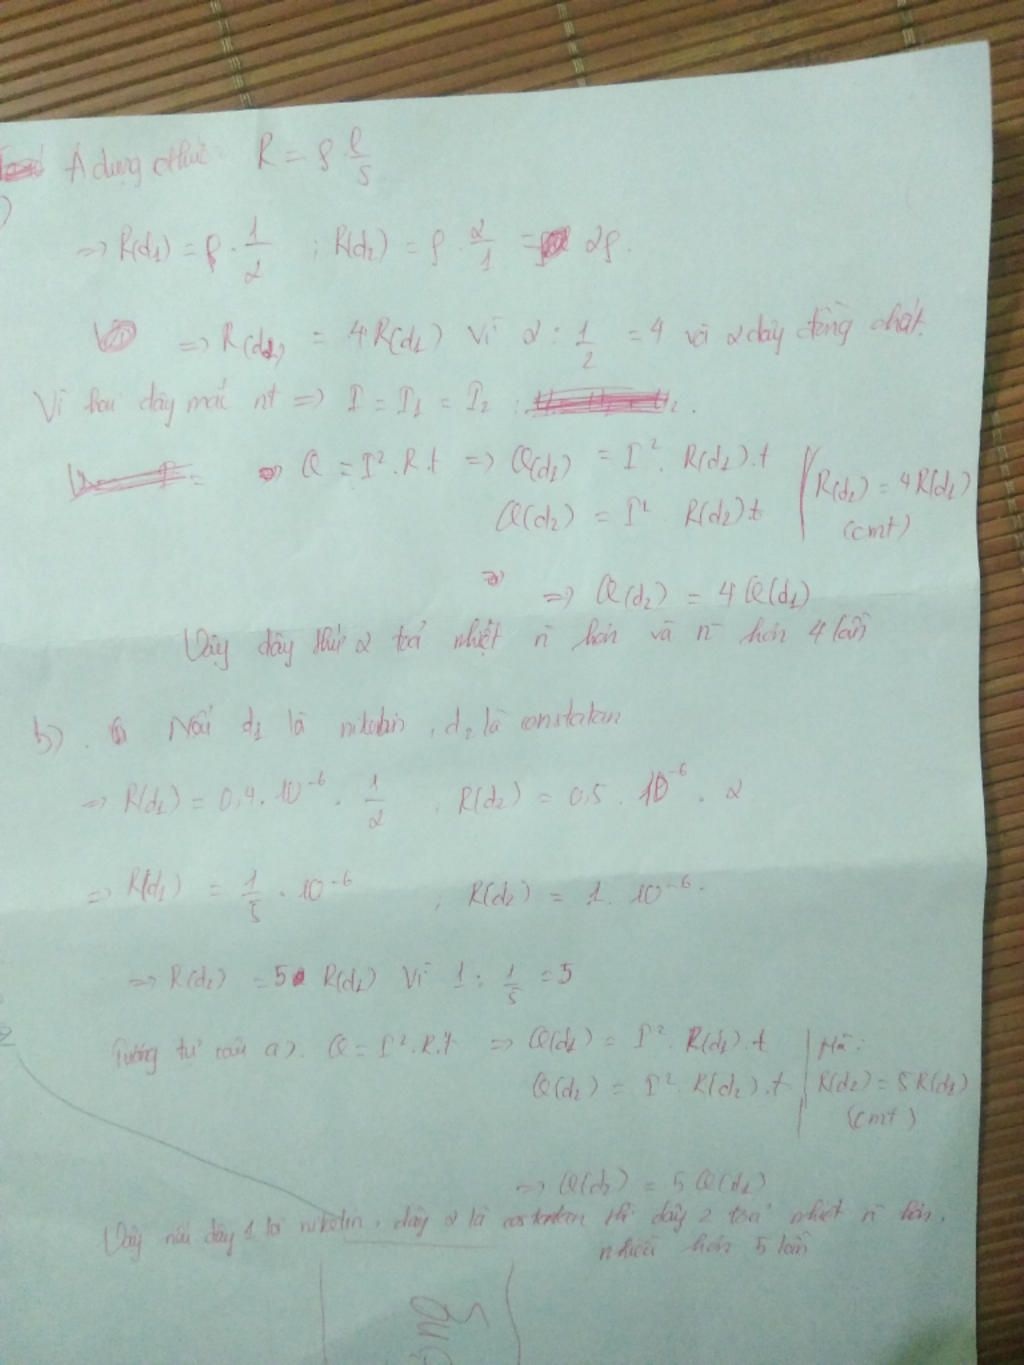 Á dụng thức R = ρ l/s
)
=> R(d1) = ρ . 1/2 ; R(d2) = ρ . 2/1 = 2ρ.
=> R(d2) = 4R(d1) vì 2 : 1/2 = 4 và 2 dây đồng chất.
Vì hai dây mắc nt => I = I1 = I2 .
=> Q = I². R. t => Q(d1) = I². R(d1).t
Q(d2) = I² R(d2).t
R(d2) = 4R(d1)
(cmt)
=> Q(d2) = 4Q(d1)
Vậy dây thứ 2 toả nhiệt n̄ hơn và n̄ hơn 4 lần
b). Nếu d1 là nikelin, d2 là constatan
=> R(d1) = 0,4. 10^-6 . 1/2 , R(d2) = 0,5 . 10^-6 . 2
=> R(d1) = 1/5 . 10^-6 ; R(d2) = 1. 10^-6.
=> R(d2) = 5 R(d1) vì 1 : 1/5 = 5
Tương tự câu a). Q = I². R.t => Q(d1) = I². R(d1).t
Q(d2) = I². R(d2).t
Mà:
R(d2) = 5R(d1)
(cmt)
=> Q(d2) = 5 Q(d1)
Vậy nếu dây 1 là nikelin, dây 2 là constantan thì dây 2 toả nhiệt n̄ hơn,
nhiều hơn 5 lần